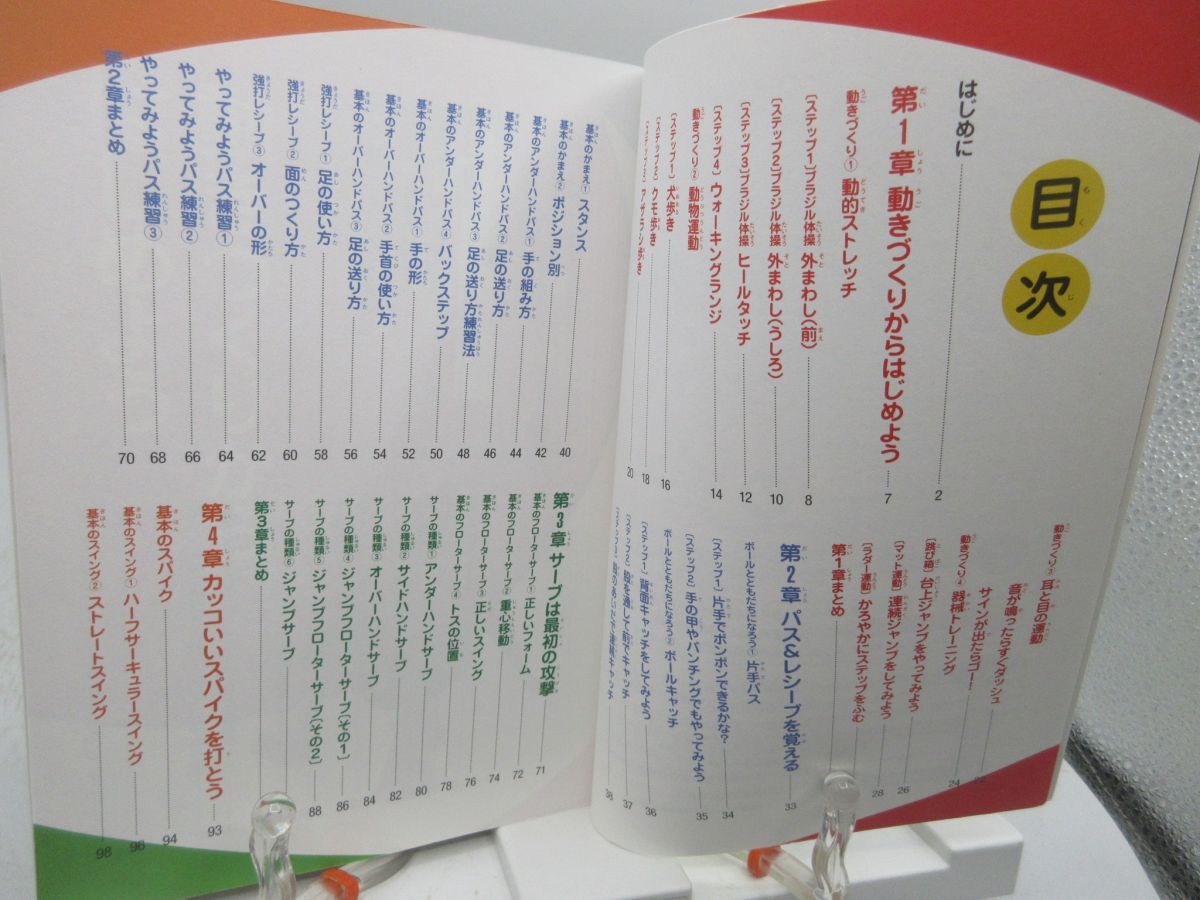 目次
はじめに 2
第1章 動きづくりからはじめよう 7
動きづくり① 動的ストレッチ
〔ステップ1〕ブラジル体操 外まわし(前) 8
〔ステップ2〕ブラジル体操 外まわし(うしろ) 10
〔ステップ3〕ブラジル体操 ヒールタッチ 12
〔ステップ4〕ウォーキングランジ 14
動きづくり② 動物運動
〔ステップ1〕犬歩き 16
〔ステップ2〕クモ歩き 18
〔ステップ3〕アザラシ歩き 20
動きづくり③ 耳と目の運動
音が鳴ったらすぐダッシュ 22
サインが出たらゴー!
動きづくり④ 器械トレーニング 24
〔跳び箱〕台上ジャンプをやってみよう
〔マット運動〕連続ジャンプをしてみよう 26
〔ラダー運動〕かろやかにステップをふむ 28
第1章まとめ
第2章 パス&レシーブを覚える 33
ボールとともだちになろう① 片手パス
〔ステップ1〕片手でポンポンできるかな? 34
〔ステップ2〕手の甲やパンチングでもやってみよう 35
ボールとともだちになろう② ボールキャッチ
〔ステップ1〕背面キャッチをしてみよう 36
〔ステップ2〕股を通して前でキャッチ 37
〔ステップ3〕股のあいだで連続キャッチ 38
基本のかまえ① スタンス 40
基本のかまえ② ポジション別 42
基本のアンダーハンドパス① 手の組み方 44
基本のアンダーハンドパス② 足の送り方 46
基本のアンダーハンドパス③ 足の送り方練習法 48
基本のアンダーハンドパス④ バックステップ 50
基本のオーバーハンドパス① 手の形 52
基本のオーバーハンドパス② 手首の使い方 54
基本のオーバーハンドパス③ 足の送り方 56
強打レシーブ① 足の使い方 58
強打レシーブ② 面のつくり方 60
強打レシーブ③ オーバーの形 62
やってみようパス練習① 64
やってみようパス練習② 66
やってみようパス練習③ 68
第2章まとめ 70
第3章 サーブは最初の攻撃 71
基本のフローターサーブ① 正しいフォーム 72
基本のフローターサーブ② 重心移動 74
基本のフローターサーブ③ 正しいスイング 76
基本のフローターサーブ④ トスの位置 78
サーブの種類① アンダーハンドサーブ 80
サーブの種類② サイドハンドサーブ 82
サーブの種類③ オーバーハンドサーブ 84
サーブの種類④ ジャンプフローターサーブ〔その1〕 86
サーブの種類⑤ ジャンプフローターサーブ〔その2〕 88
サーブの種類⑥ ジャンプサーブ
第3章まとめ
第4章 カッコいいスパイクを打とう 93
基本のスパイク 94
基本のスイング① ハーフサーキュラースイング 96
基本のスイング② ストレートスイング 98